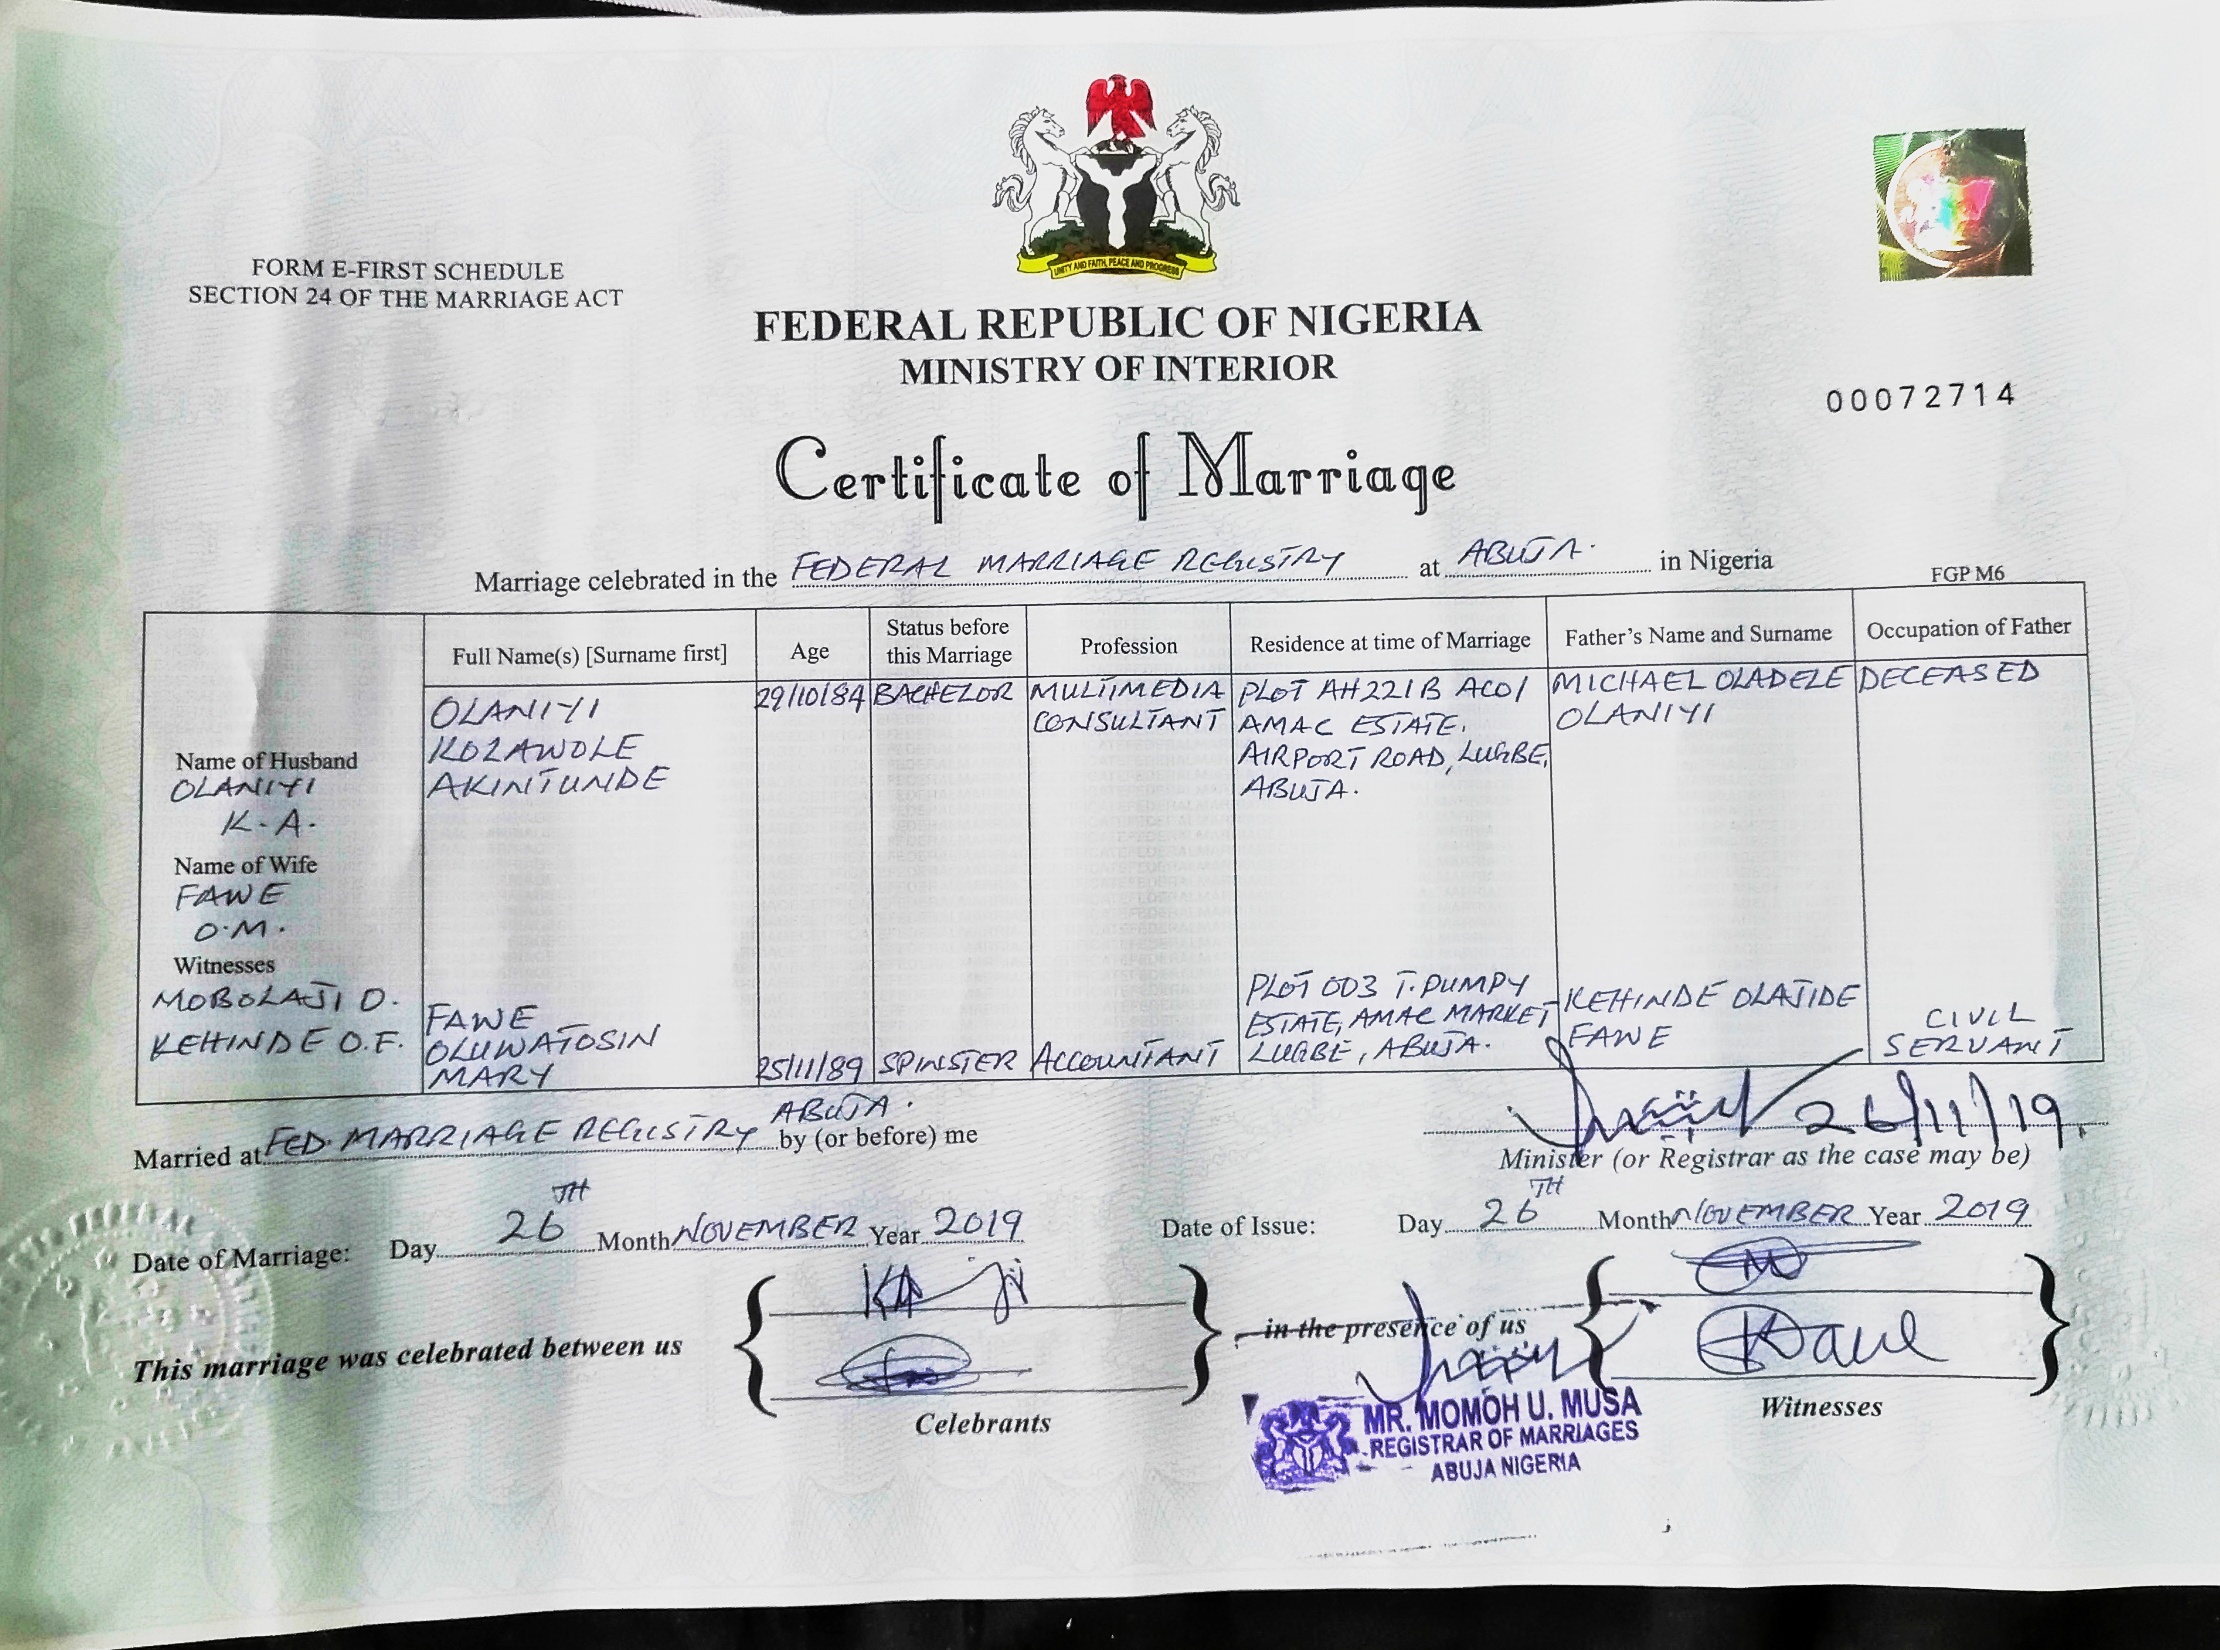 UNITY AND FAITH, PEACE AND PROGRESS
FORM E-FIRST SCHEDULE
SECTION 24 OF THE MARRIAGE ACT
FEDERAL REPUBLIC OF NIGERIA
MINISTRY OF INTERIOR
00072714
Certificate of Marriage
Marriage celebrated in the FEDERAL MARRIAGE REGISTRY at ABUJA. in Nigeria
FGP M6
Full Name(s) [Surname first]
Age
Status before
this Marriage
Profession
Residence at time of Marriage
Father's Name and Surname
Occupation of Father
Name of Husband
OLANIYI
K. A.
OLANIYI
KOLAWOLE
AKINTUNDE
29/10/84
BACHELOR
MULTIMEDIA
CONSULTANT
PLOT AH221B ACO/
AMAC ESTATE.
AIRPORT ROAD, LUGBE,
ABUJA.
MICHAEL OLADELE
OLANIYI
DECEASED
Name of Wife
FAWE
O.M.
Witnesses
MOBOLAJI O.
KEHINDE O.F.
FAWE
OLUWATOSIN
MARY
25/11/89
SPINSTER
ACCOUNTANT
PLOT 003 T. PUMPY
ESTATE, AMAC MARKET
LUGBE, ABUJA.
KEHINDE OLAJIDE
FAWE
CIVIL
SERVANT
Married at FED. MARRIAGE REGISTRY ABUJA. by (or before) me
26/11/19
Minister (or Registrar as the case may be)
Date of Marriage: Day 26TH Month NOVEMBER Year 2019
Date of Issue: Day 26TH Month NOVEMBER Year 2019
This marriage was celebrated between us
Celebrants
in the presence of us
Witnesses
MR. MOMOH U. MUSA
REGISTRAR OF MARRIAGES
ABUJA NIGERIA